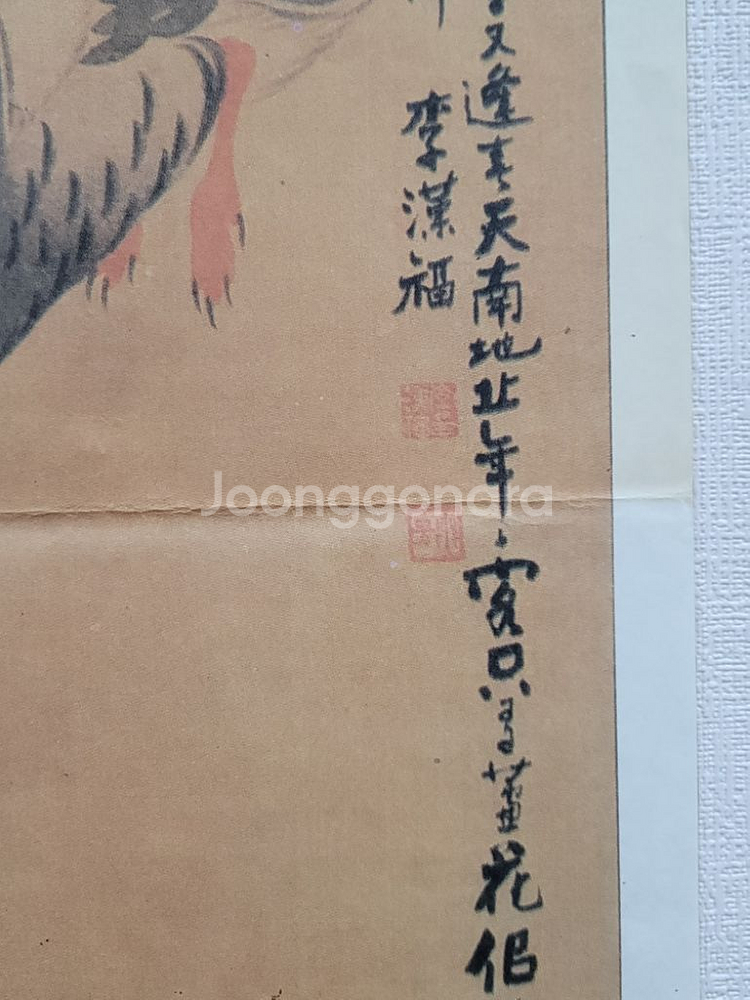 又逢天南地北年々客只有蘆花佀
李漢福
Joonggonara